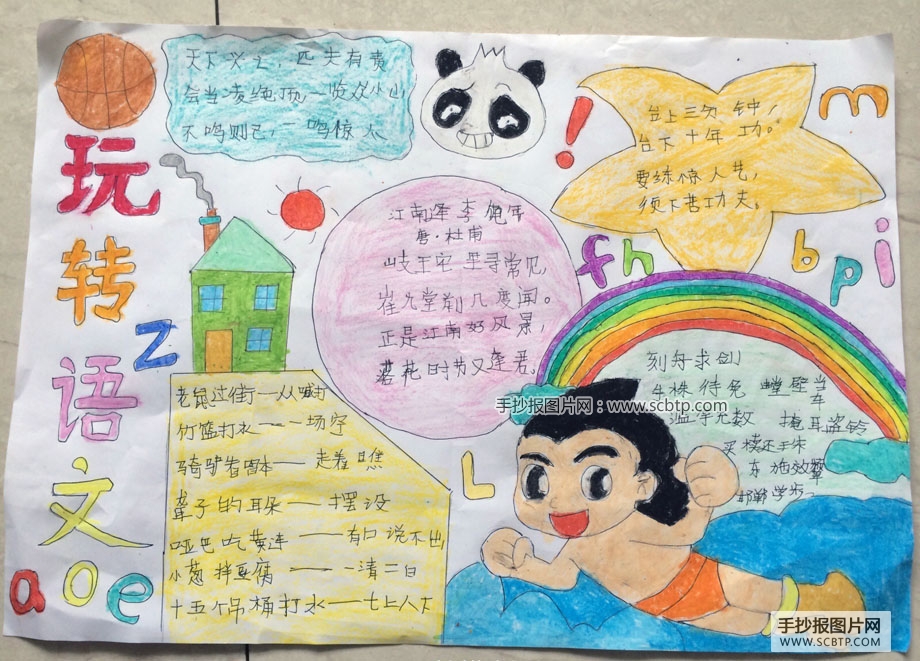 玩转语文
天下兴亡，匹夫有责
会当凌绝顶一览众小山
不鸣则已，一鸣惊人
台上三分钟，
台下十年功。
要练惊人艺，
须下苦功夫。
m
f h b p i
江南逢李龟年
唐·杜甫
岐王宅里寻常见，
崔九堂前几度闻。
正是江南好风景，
落花时节又逢君。
z
刻舟求剑
守株待兔 螳壁当车
滥竽充数 掩耳盗铃
买椟还珠
东施效颦
邯郸学步
手抄报图片网：www.scbtp.com
老鼠过街——人人喊打
竹篮打水——一场空
骑驴看唱本——走着瞧
聋子的耳朵——摆设
哑巴吃黄连——有口说不出
小葱拌豆腐——一清二白
十五个吊桶打水——七上八下
L
a o e
手抄报图片网
WWW.SCBTP.COM